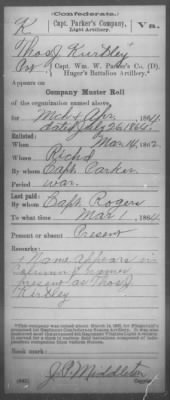 (Confederate.)
K Capt. Parker's Company, Va.
Light Artillery.
Thos J Kirtley
Pvt, Capt. Wm. W. Parker's Co. (D),
Huger's Battalion Artillery.*
Appears on
Company Muster Roll
of the organization named above,
for Mch & Apr, 1864.
dated July 26, 1864.
Enlisted:
When Mar 14, 1862
Where Richd
By whom Capt. Parker
Period war.
Last paid:
By whom Capt. Rogers
To what time Mar 1, 1864
Present or absent Present
Remarks:
Name appears in
column of names
present as Thos J
Kirtley
Book mark:
J. P. Middleton
Copyist.